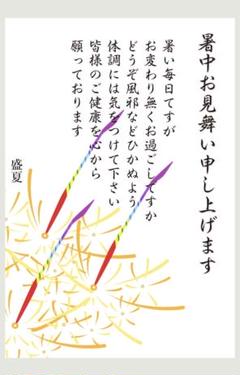 暑中お見舞い申し上げます
暑い毎日てすが
お変わり無くお過ごしてすか
どうぞ風邪などひかぬよう
体調には気をつけて下さい
皆様のご健康を心から
願っております
盛夏